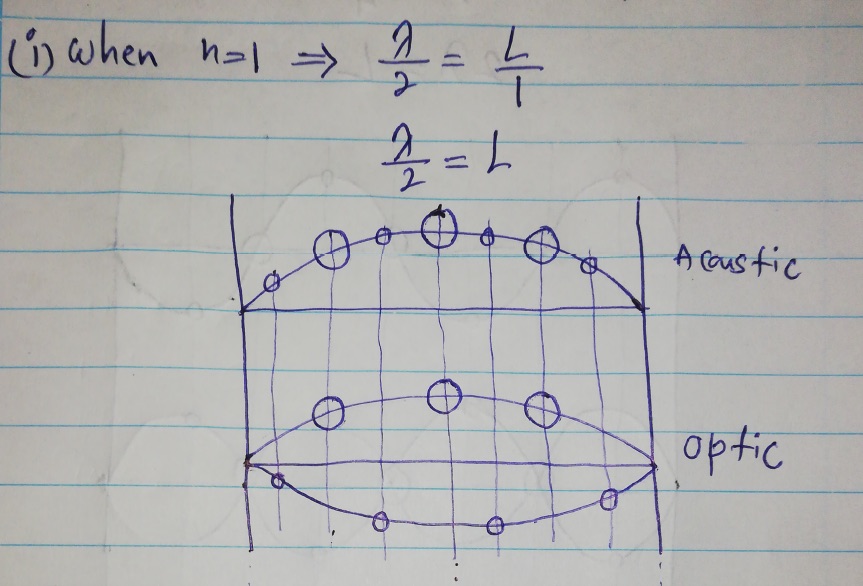 (i) When n=1 ⇒ λ/2 = L/1
λ/2 = L
Acoustic
Optic